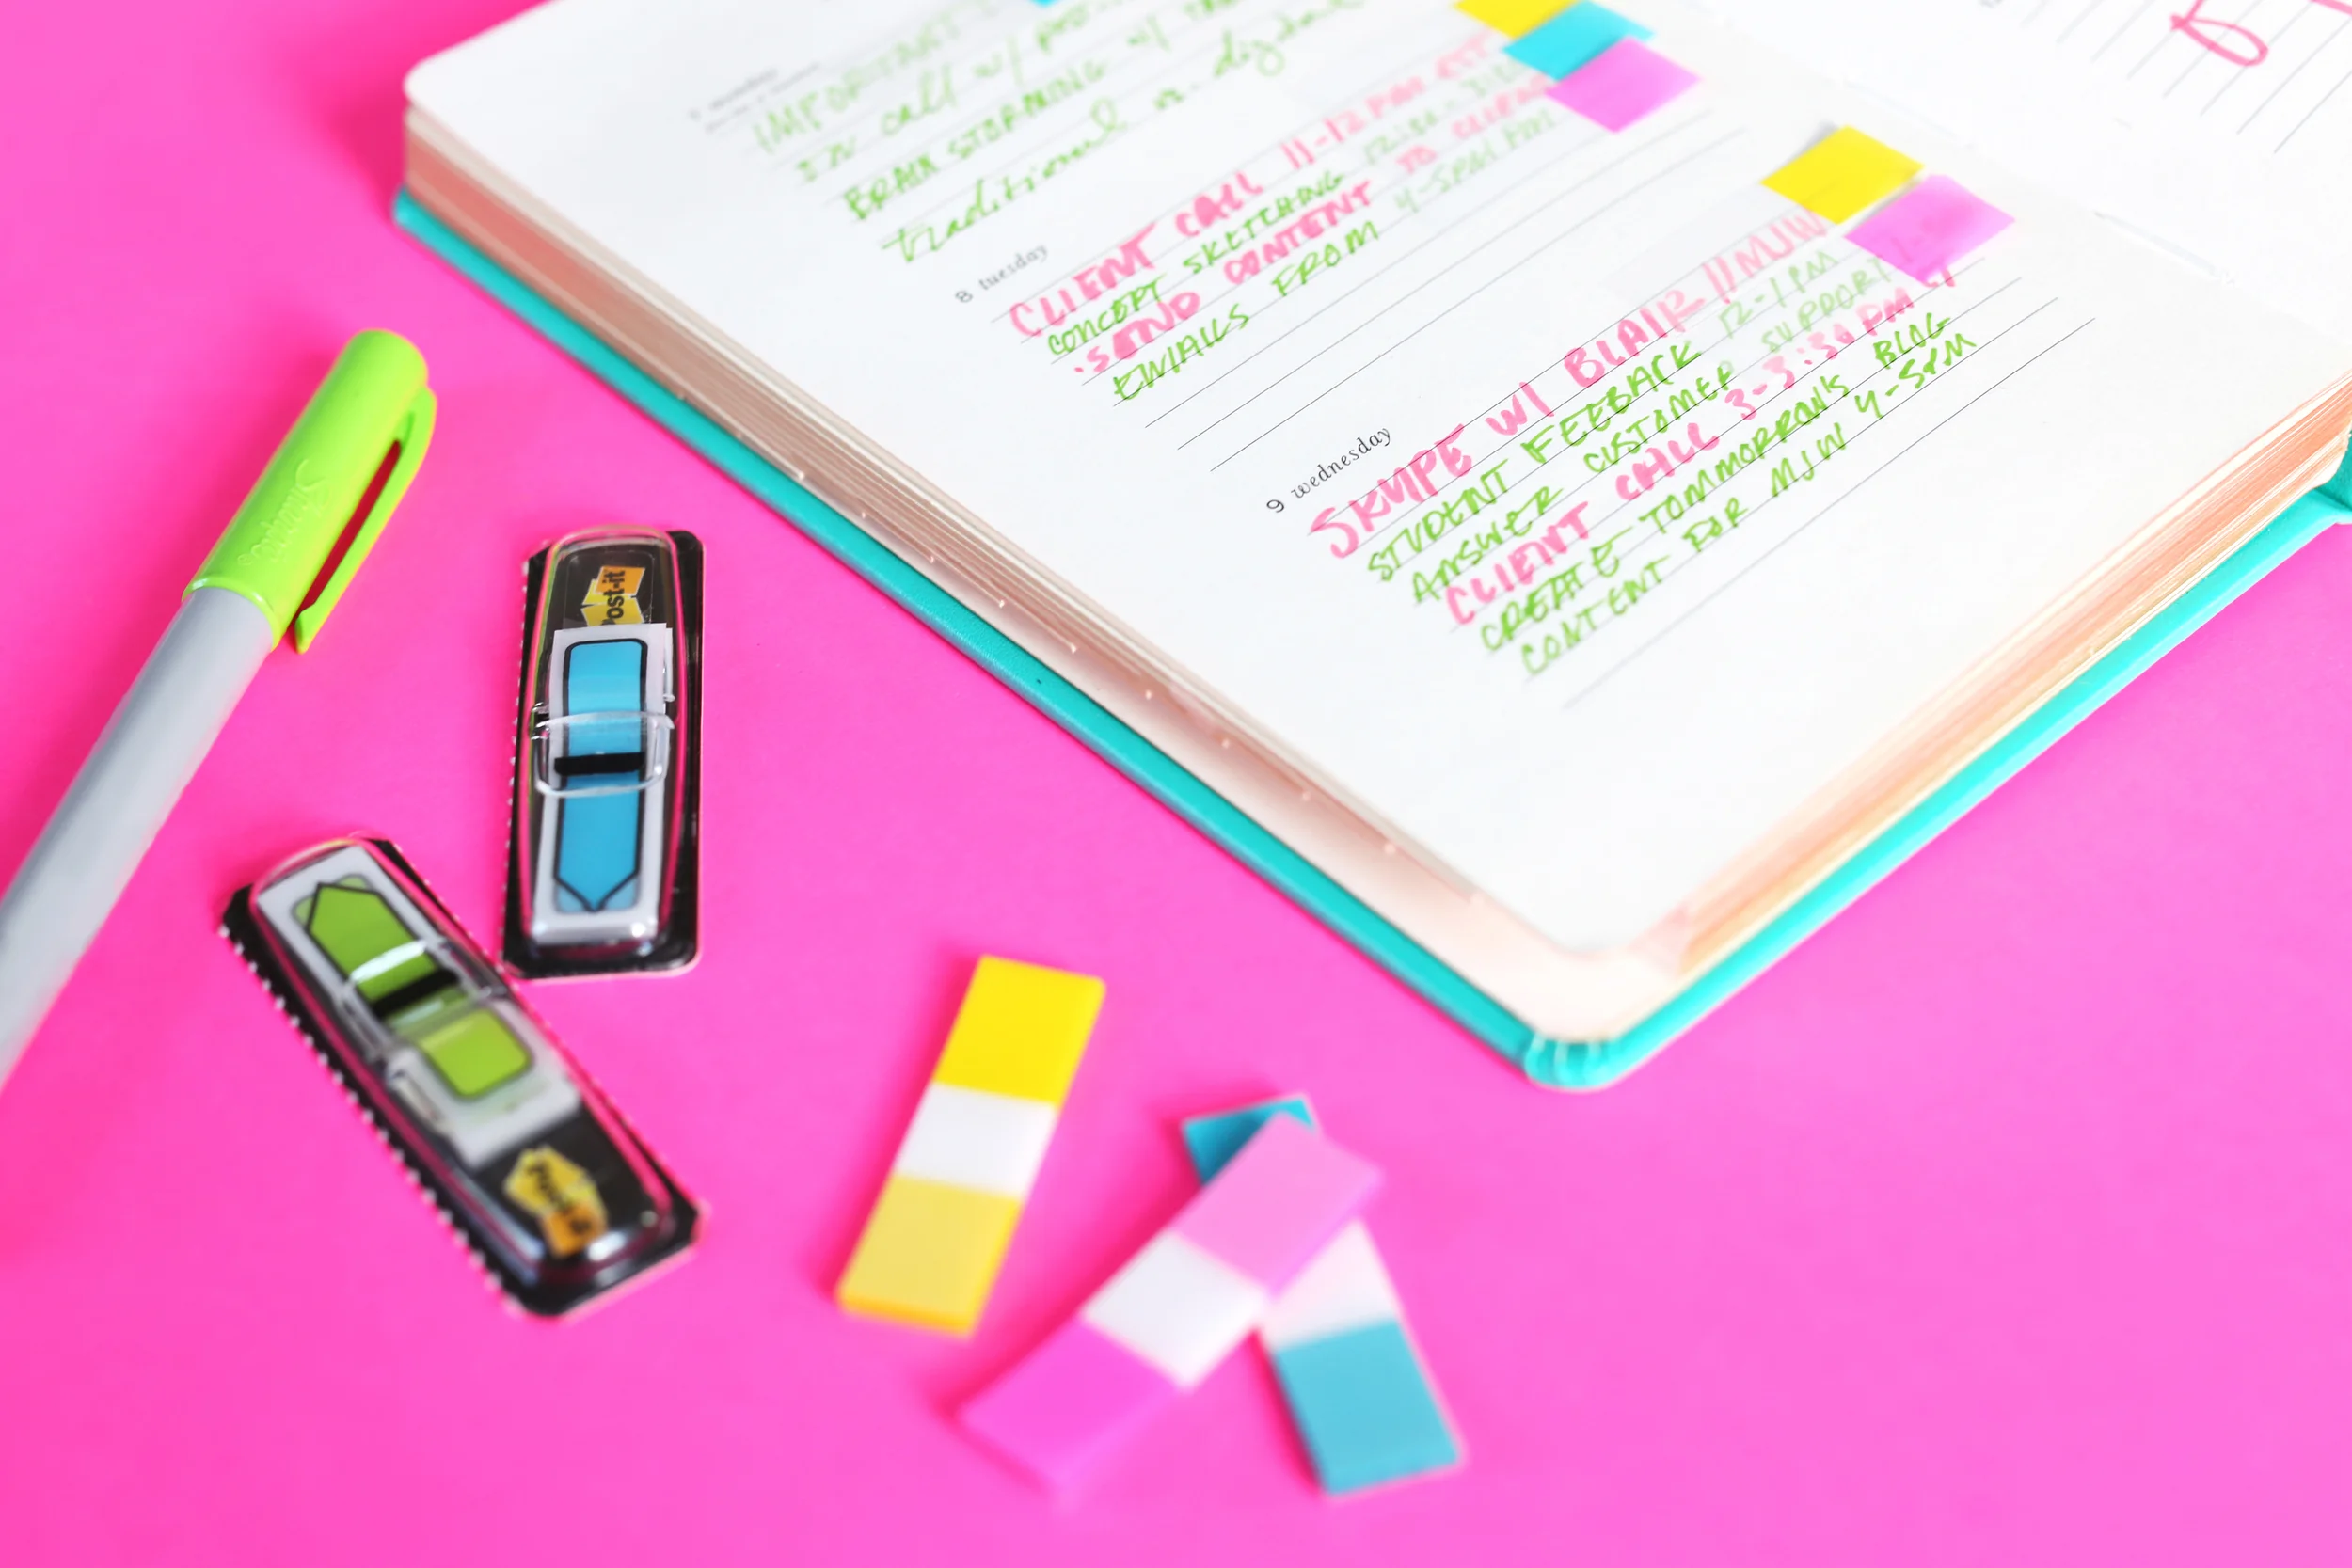 IMPORTANT
call w/
BRAIN STORMING w/
traditional vs. digital
8 tuesday
CLIENT CALL 11-12 PM EST
CONCEPT SKETCHING
SEND CONTENT TO CLIENT
EMAILS FROM 4-5PM
9 wednesday
SKYPE W/ BLAIR // MJW
STUDENT FEEBACK 12-1 PM
ANSWER CUSTOMER SUPPORT
CLIENT CALL 3-3:30 PM
CREATE TOMMORROW'S BLOG
CONTENT FOR MJW 4-5PM
Sharpie
Post-it
Post-it